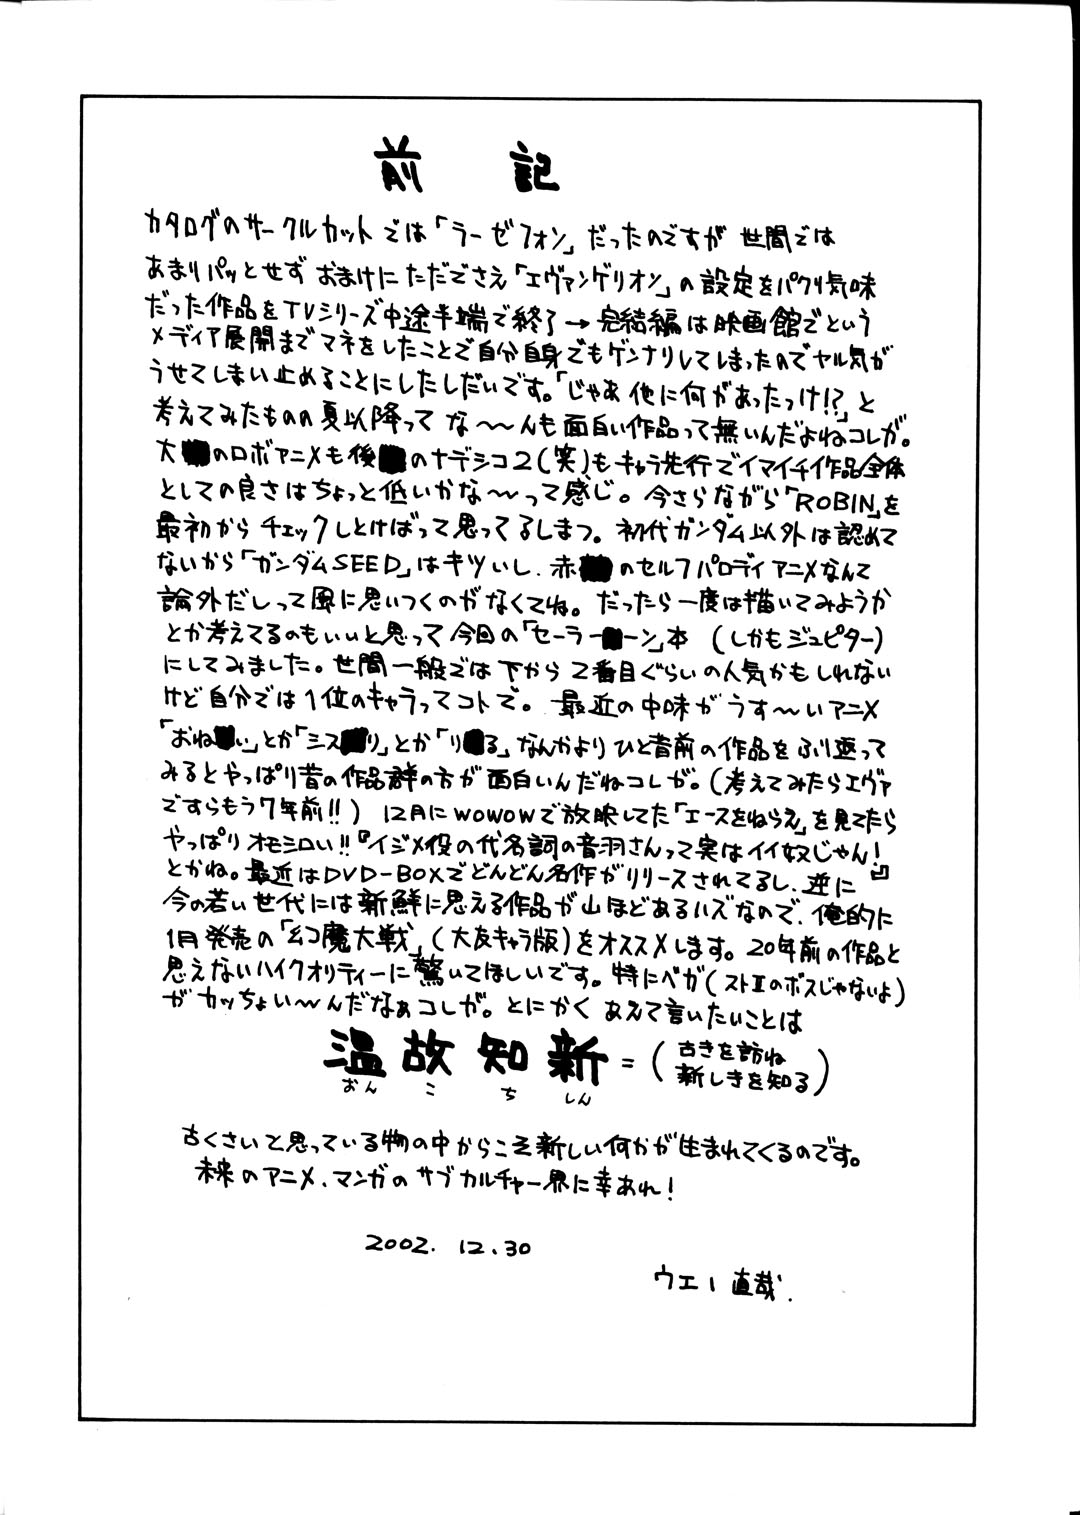 前記
カタログのサークルカットでは「ラーゼフォン」だったのですが 世間では
あまりパッとせず おまけに ただでさえ「エヴァンゲリオン」の設定をパクリ気味
だった作品をTVシリーズ中途半端で終了→完結編は映画館でという
メディア展開までマネをしたことで自分自身でもゲンナリしてしまったのでヤル気が
うせてしまい止めることにしたしだいです。「じゃあ 他に何があったっけ!?」と
考えてみたものの夏以降って な〜〜んも面白い作品って無いんだよねコレが。
大 のロボアニメも後 のナデシコ2(笑)もキャラ先行でイマイチ作品全体
としての良さはちょっと低いかな〜〜って感じ。今さらながら「ROBIN」を
最初から チェックしとけばって思ってるしまつ。初代ガンダム以外は認めて
ないから「ガンダムSEED」はキツいし、赤 のセルフパロディアニメなんて
論外だしって風に思いつくのがなくてね。だったら一度は描いてみようか
とか考えてるのもいいと思って今回の「セーラー ーン」本 (しかもジュピター)
にしてみました。世間一般では下から2番目ぐらいの人気かもしれない
けど自分では1位のキャラってコトで。最近の中味がうす〜いアニメ
「おね い」とか「シス リ」とか「リ る」なんかよりひと昔前の作品をふり返って
みるとやっぱり昔の作品群の方が面白いんだねコレが。(考えてみたらエヴァ
ですらもう7年前!!) 12月にWOWOWで放映してた「エースをねらえ」を見てたら
やっぱりオモシロい!!『イジメ役の代名詞の音羽さんって実はイイ奴じゃん!』
とかね。最近はDVD-BOXでどんどん名作がリリースされてるし、逆に
今の若い世代には新鮮に思える作品が山ほどあるハズなので、俺的に
1月発売の「幻魔大戦」(大友キャラ版)をオススメします。20年前の作品と
思えないハイクオリティーに驚いてほしいです。特にベガ(ストⅡのボスじゃないよ)
がカッちょい〜んだなぁコレが。とにかく あえて言いたいことは
温故知新=(古きを訪ね新しきを知る)
おん こ ち しん
古くさいと思っている物の中からこそ新しい何かが生まれてくるのです。
未来のアニメ、マンガのサブカルチャー界に幸あれ!
2002.12.30
ウエノ直哉.